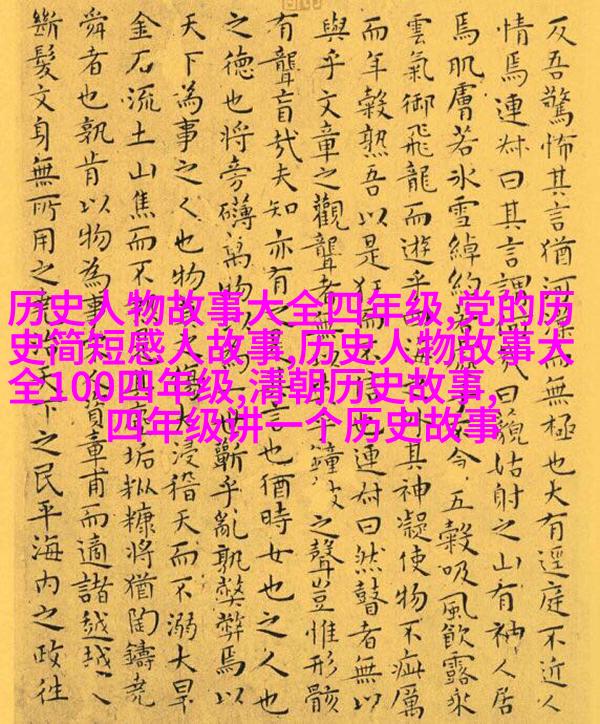 历史人物故事大全四年级,党的历
史简短感人故事,历史人物故事大
全100四年级,清朝历史故事,
四年级讲一个历史故事
反吾驚怖其言猶河而無極也大有逕庭不近人
情焉連叔曰其言謂曰藐姑射之山有神人居
焉肌膚若氷雪綽約五穀吸風飲露乗
雲氣御飛龍而遊乎海其神凝使物不疵厲
而年穀熟吾以是狂而不信也連叔曰然瞽者無以
與乎文章之觀聾者無乎鐘之聲豈惟形骸
有聾盲哉夫知亦有之言也猶時女也之人也
之德也將旁礴萬物以一世蘄乎亂孰弊弊焉以
天下為事之人也物傷大浸稽天而不溺大旱
金石流土山焦而不是其垢粃糠將猶陶鑄堯
舜者也孰肯以物為事資章甫而適諸越越人
斷髮文身無所用之堯治天下之民平海内之政往